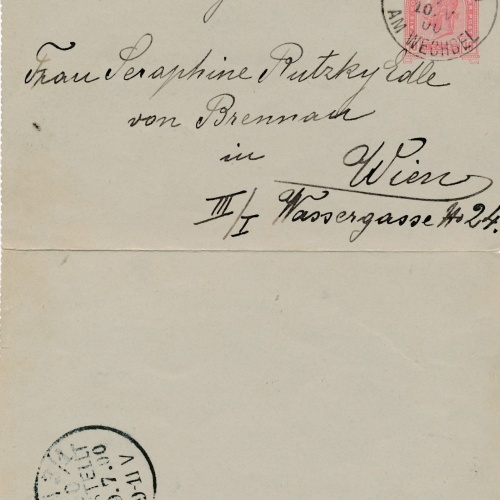 AM WECHSEL
Frau Seraphine Rutzky Edle
von Brennau
in Wien
III/I Wassergasse No 24.
9-11 V